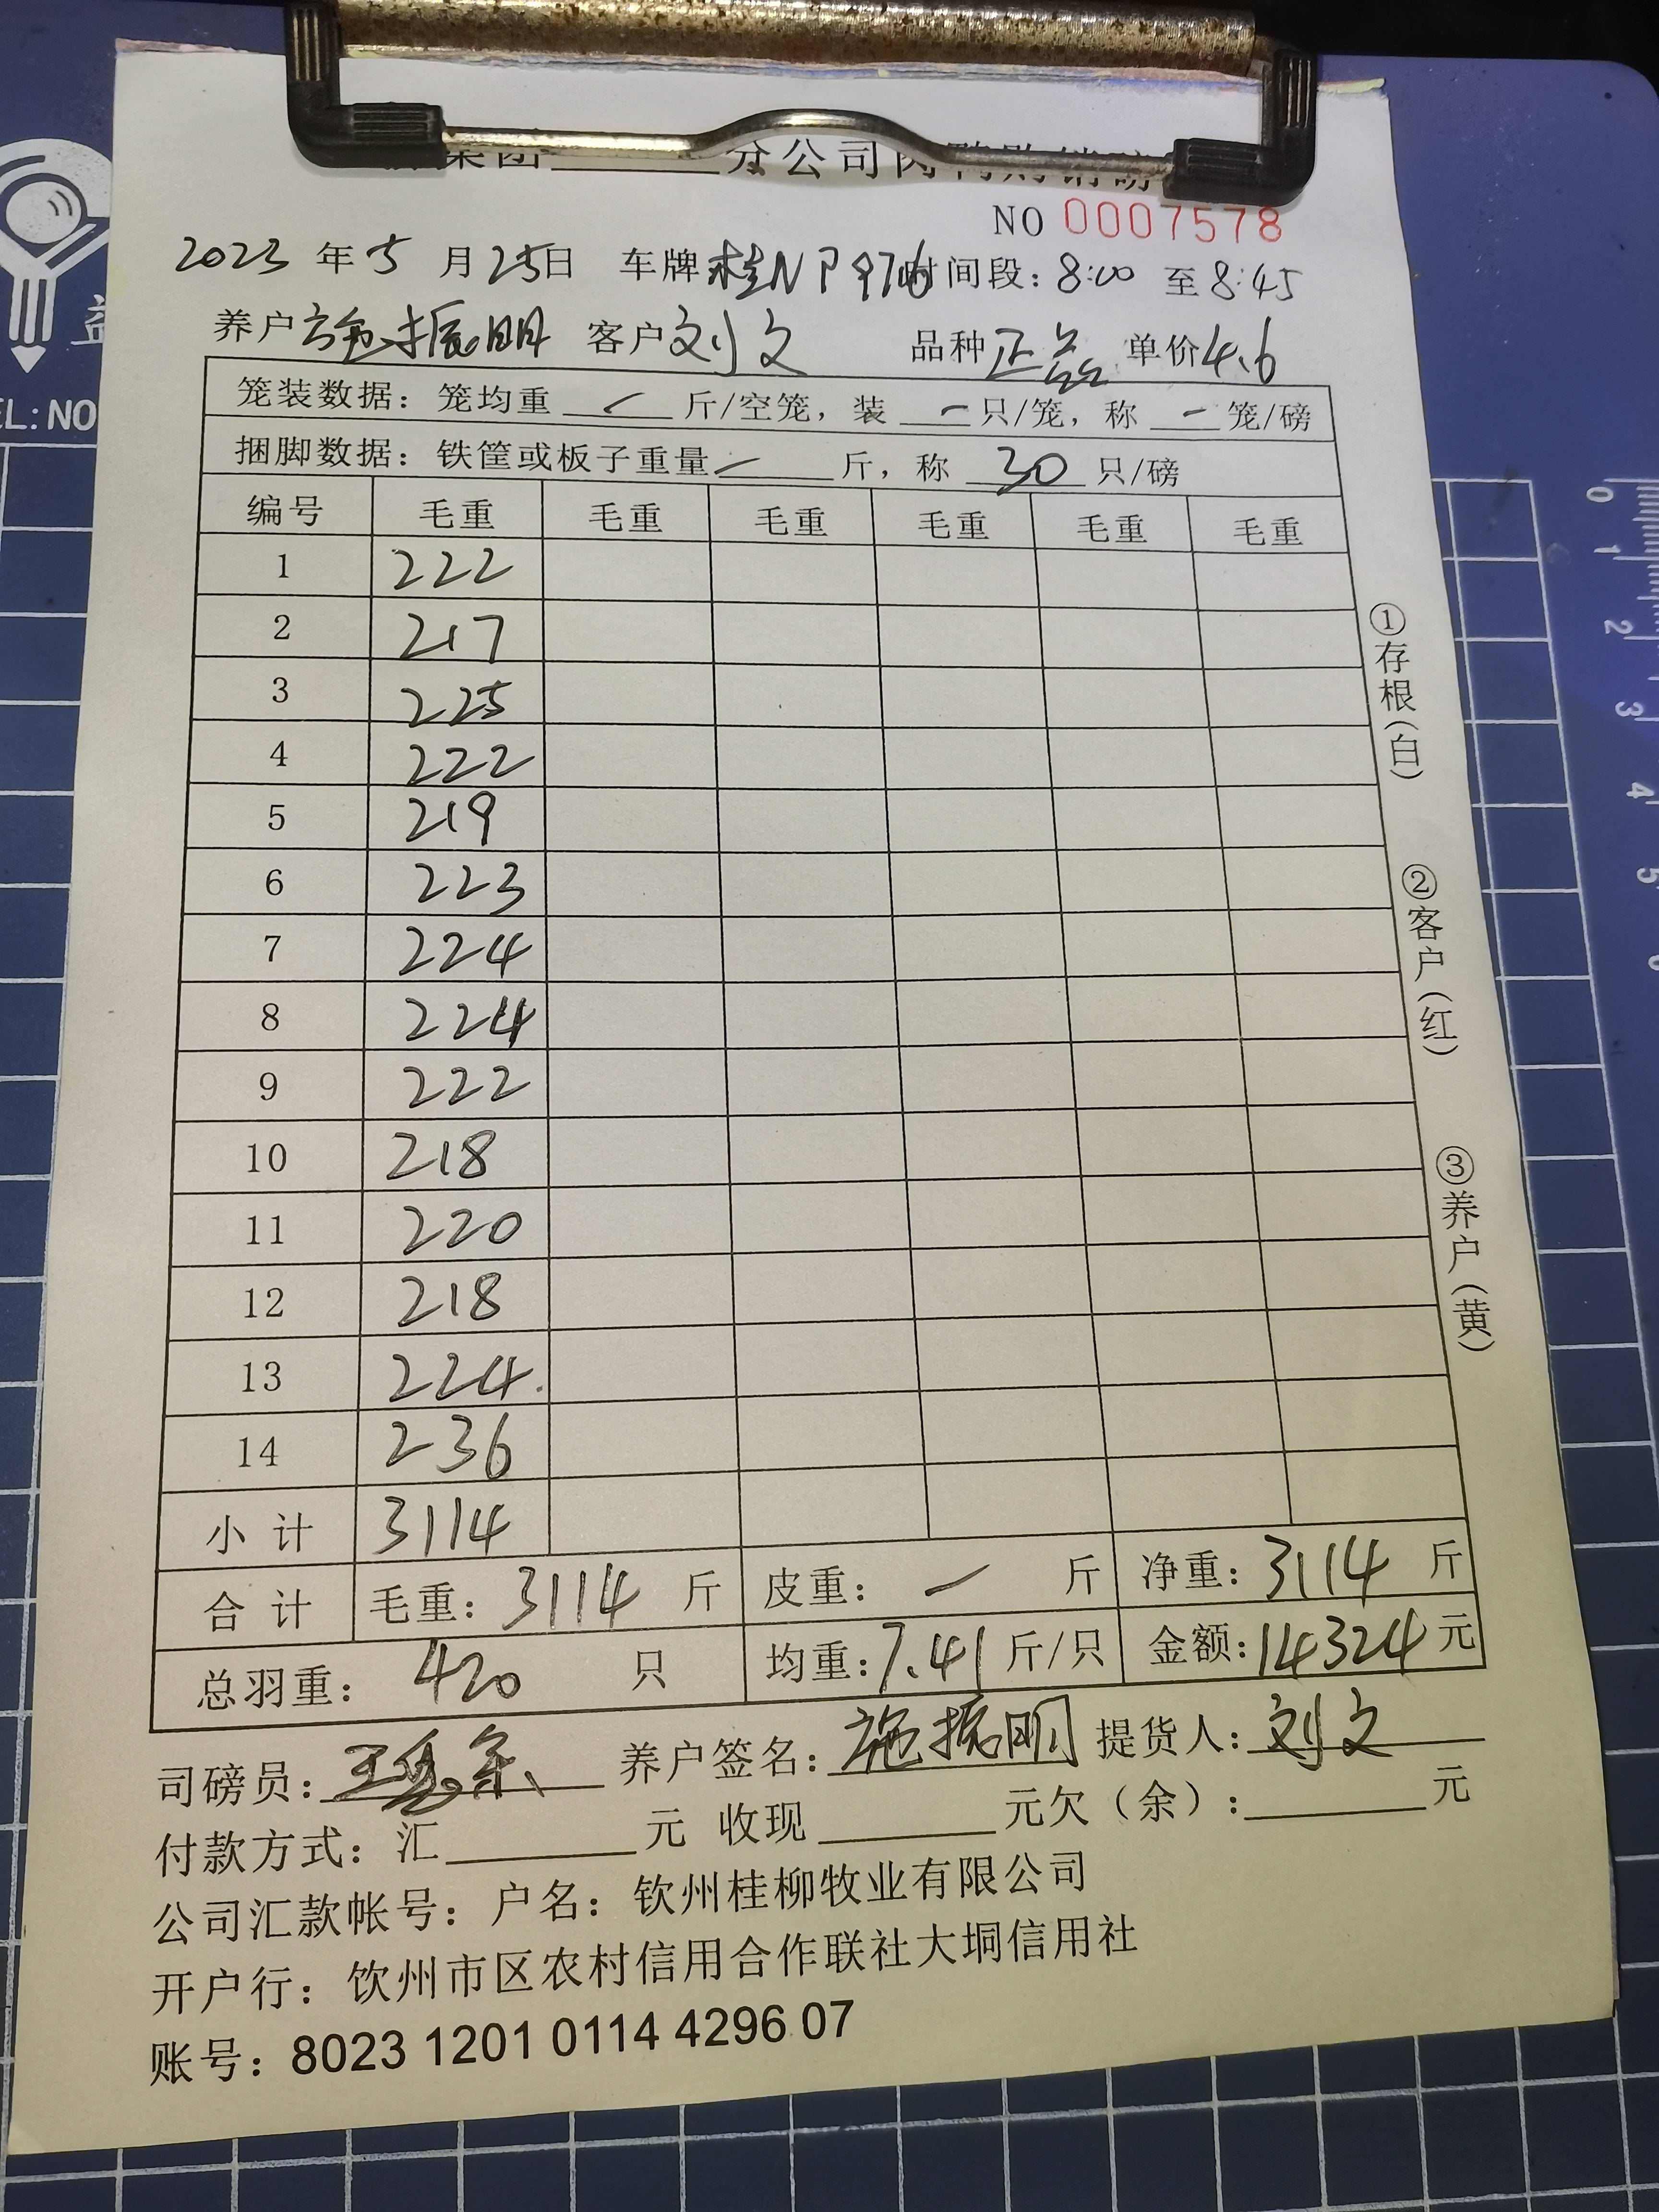 集团______分公司肉鸭购销磅
NO 0007578
2023 年 5 月 25日 车牌 桂NP 时间段: 8:00 至 8:45
养户 施振明 客户 刘文 品种 正品 单价 4.6
笼装数据: 笼均重 — 斤/空笼, 装 — 只/笼, 称 — 笼/磅
捆脚数据: 铁筐或板子重量 — 斤, 称 30 只/磅
编号 毛重 毛重 毛重 毛重 毛重 毛重
1 222
2 217
3 225
4 222
5 219
6 223
7 224
8 224
9 222
10 218
11 220
12 218
13 224
14 236
小计 3114
合计 毛重: 3114 斤 皮重: — 斤 净重: 3114 斤
总羽重: 420 只 均重: 7.41 斤/只 金额: 14324 元
司磅员: 王 养户签名: 施振明 提货人: 刘文
付款方式: 汇______元 收现______元欠(余):______元
公司汇款帐号: 户名: 钦州桂柳牧业有限公司
开户行: 钦州市区农村信用合作联社大垌信用社
账号: 8023 1201 0114 4296 07
①存根(白)
②客户(红)
③养户(黄)
益
EL:NO
0
1
2
3
4
5
6